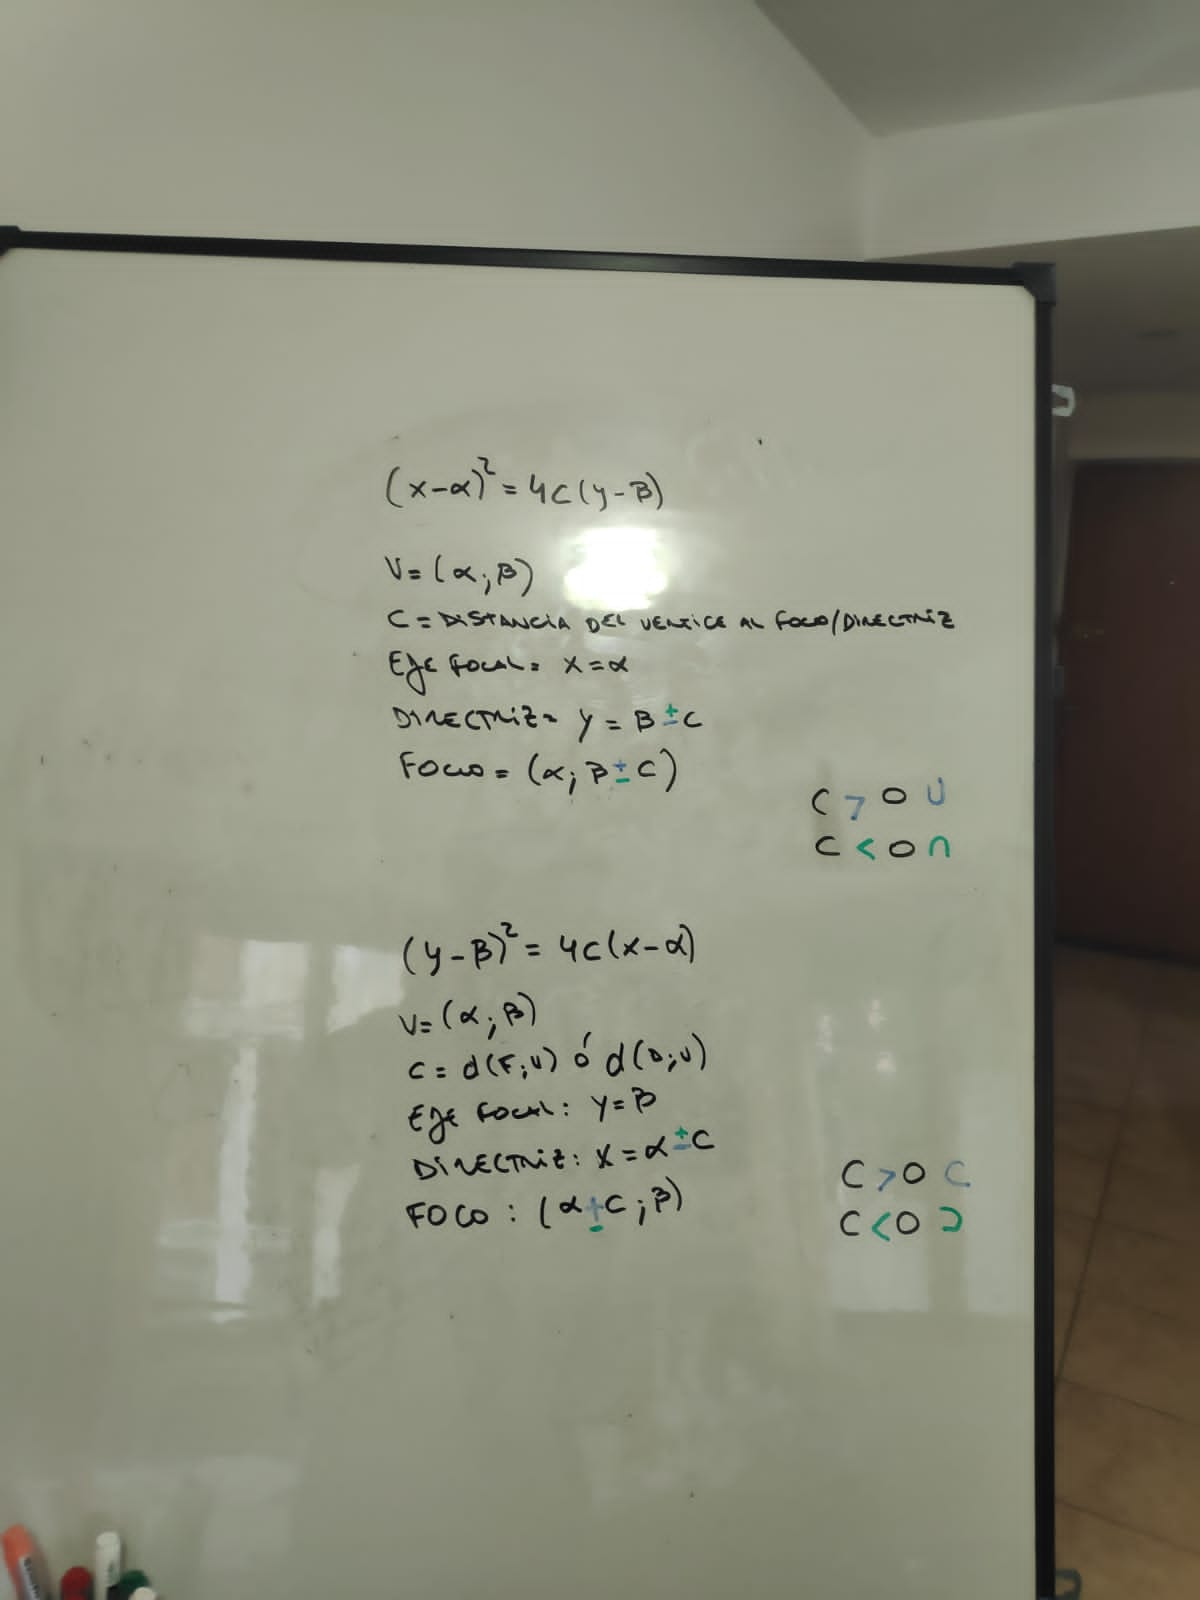 (x-α)² = 4C(y-β)
V = (α; β)
C = DISTANCIA DEL VERTICE AL FOCO/DIRECTRIZ
EJE FOCAL = X = α
DIRECTRIZ = Y = β ± C
FOCO = (α; β ± C)
C > 0 ∪
C < 0 ∩
(y-β)² = 4C(x-α)
V = (α; β)
C = d(F; V) ó d(D; V)
EJE FOCAL: Y = β
DIRECTRIZ: X = α ± C
FOCO: (α ± C; β)
C > 0 ⊂
C < 0 ⊃